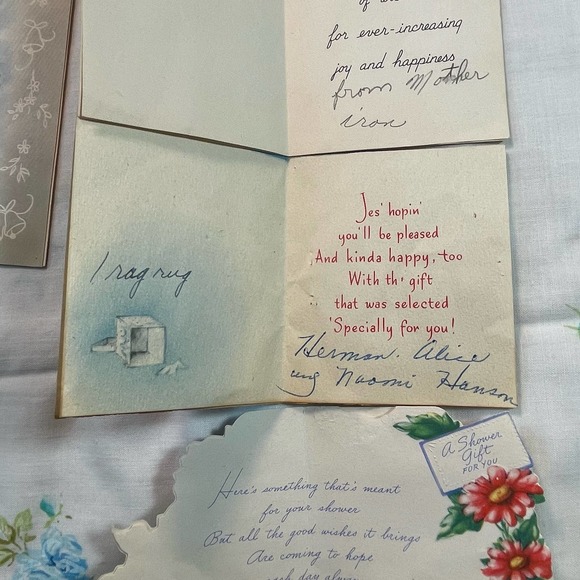 for ever-increasing
joy and happiness
from Mother
iron
1 rag rug
Jes' hopin'
you'll be pleased
And kinda happy, too
With th' gift
that was selected
'Specially for you!
Herman. Alice
Naomi Hanson
A Shower
Gift
FOR YOU
Here's something that's meant
for your shower
But all the good wishes it brings
Are coming to hope
each day